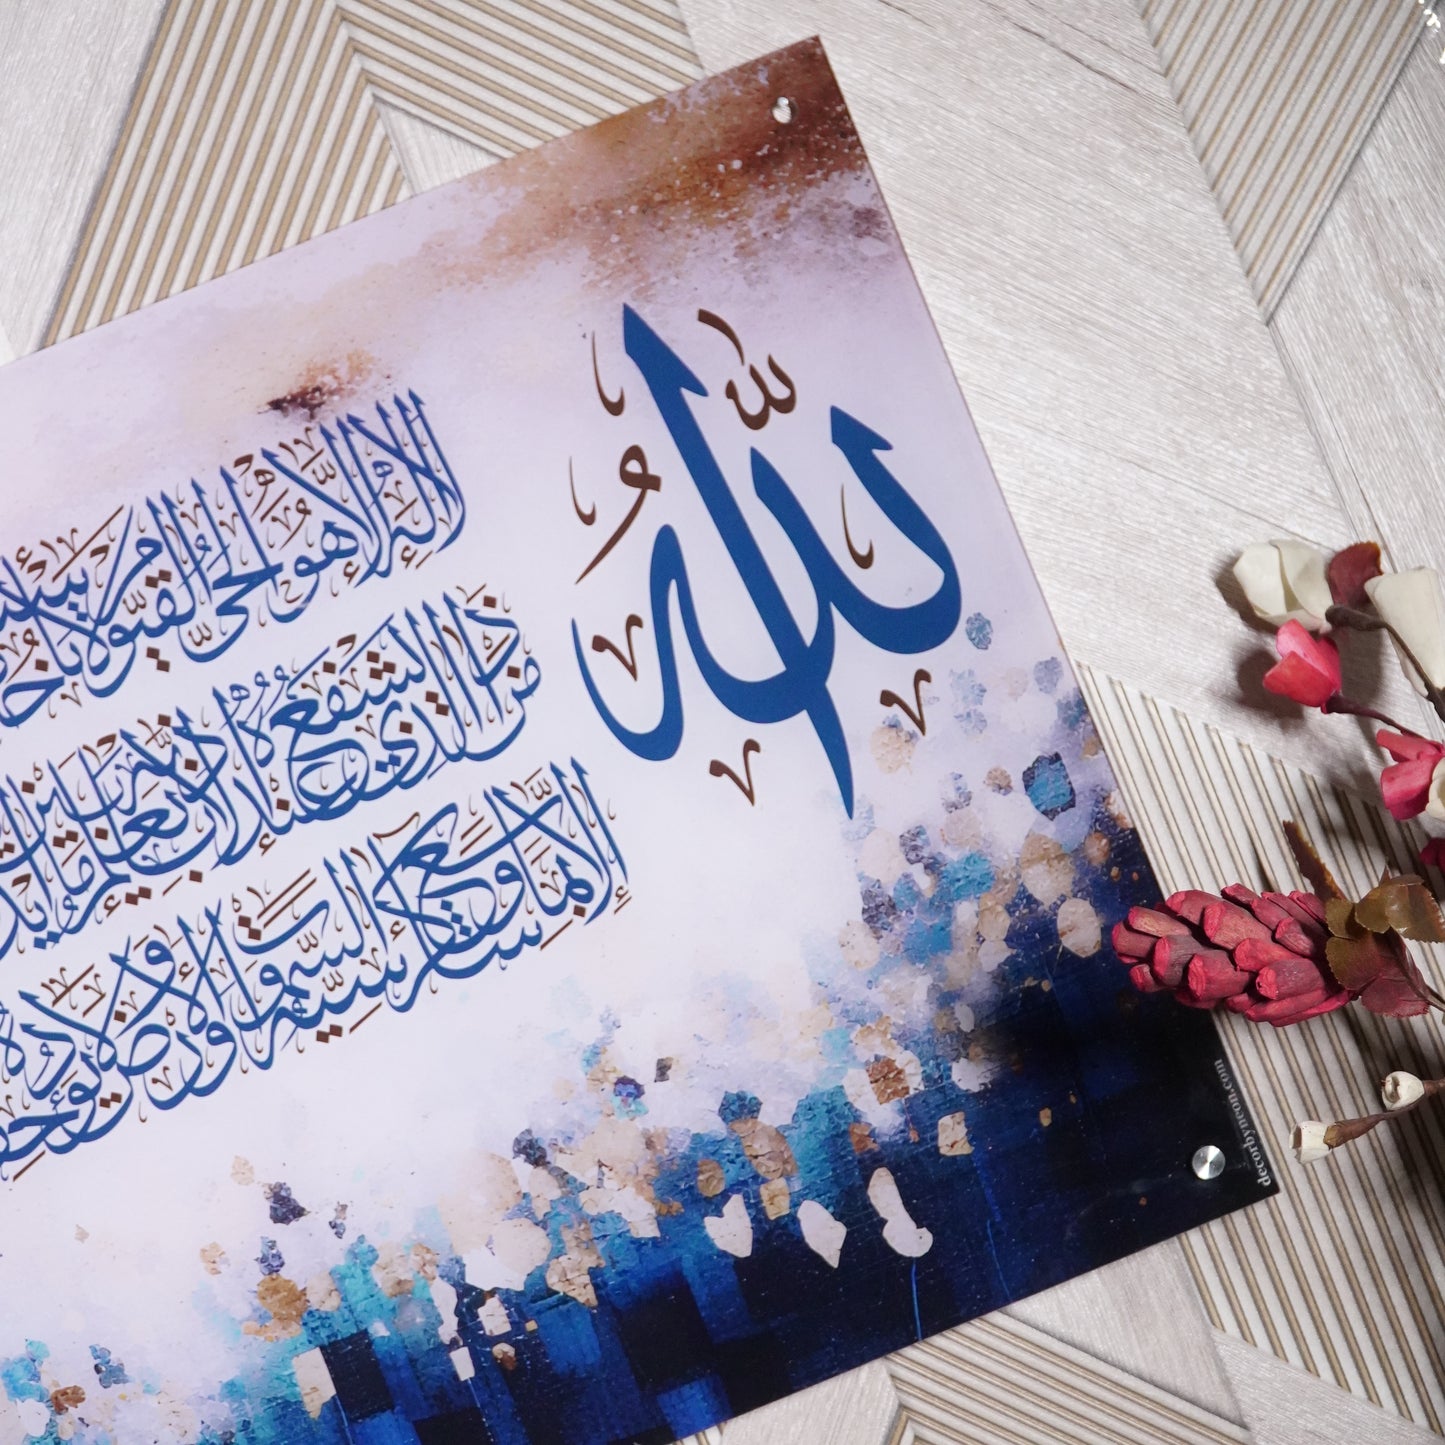 اللَّهُ
لَا إِلَٰهَ إِلَّا هُوَ الْحَيُّ الْقَيُّومُ لَا
مَنْ ذَا الَّذِي يَشْفَعُ عِنْدَهُ إِلَّا بِإِذْنِهِ يَعْلَمُ مَا بَيْنَ
إِلَّا بِمَا شَاءَ وَسِعَ كُرْسِيُّهُ السَّمَٰوَاتِ وَالْأَرْضَ وَلَا يَئُودُهُ
decorbyneon.com